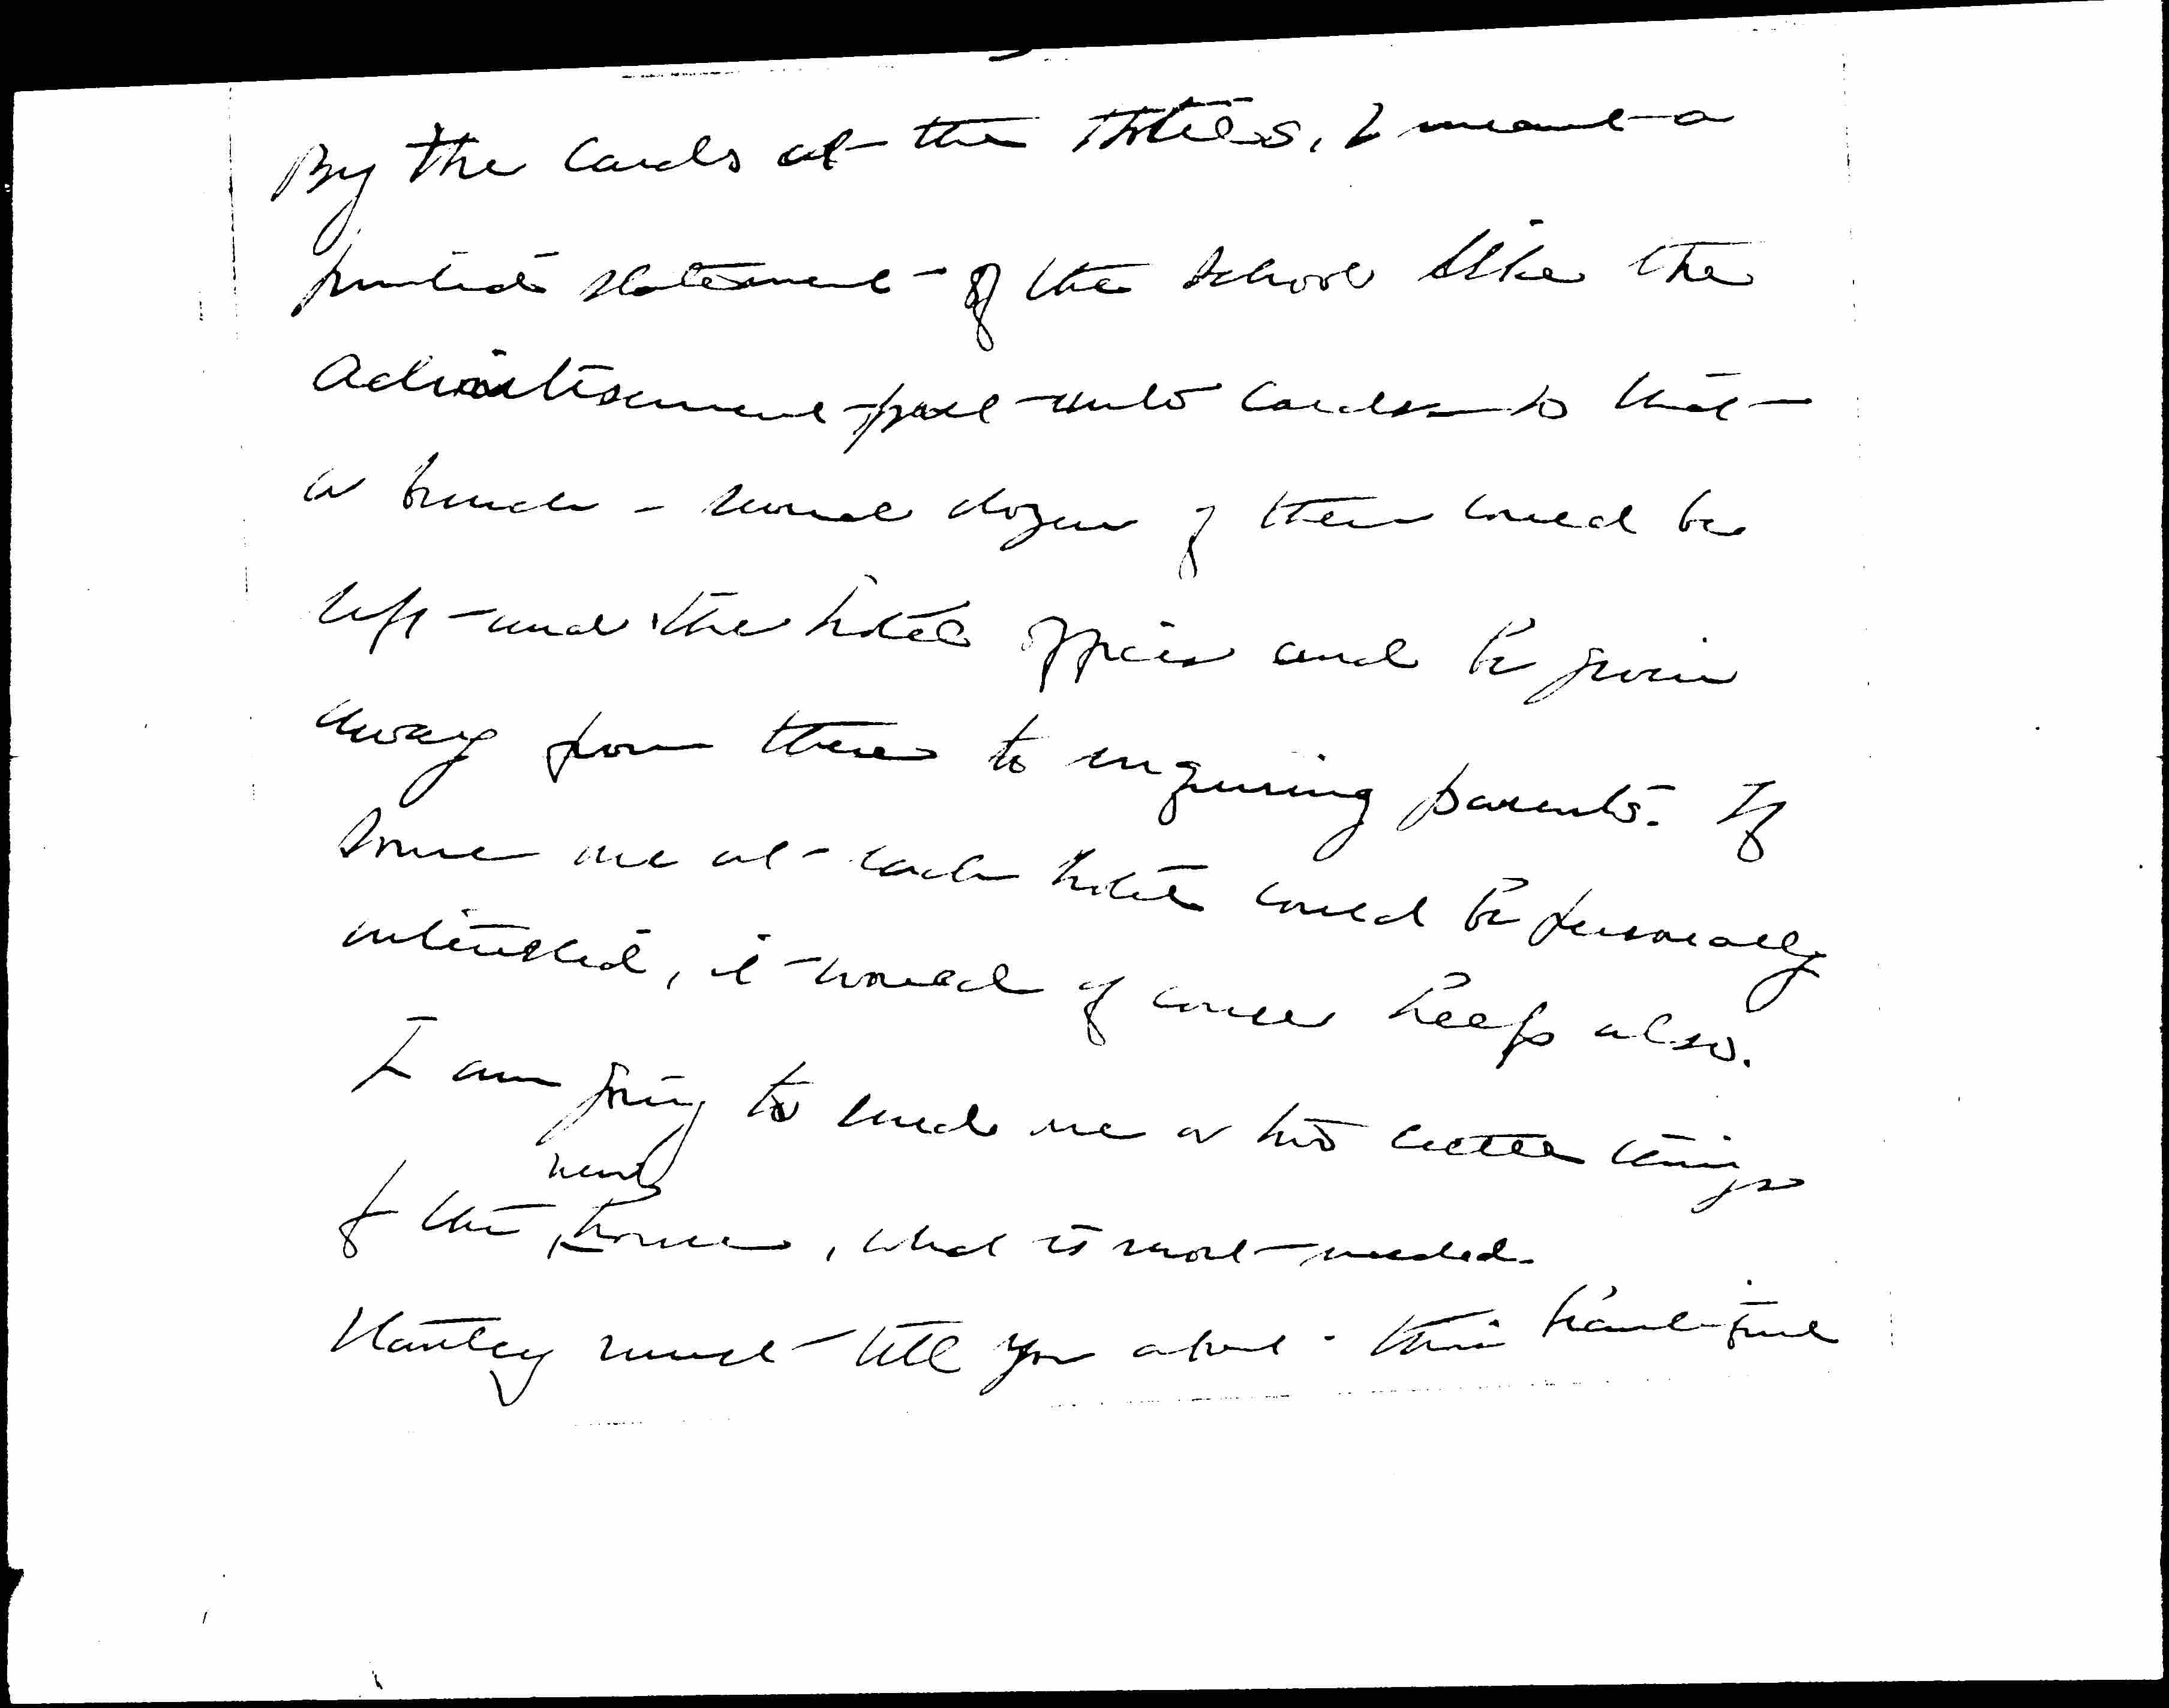 By the cards at the Hotels, I meant a
printed statement of the school like the
advertisement put into cards so that
a bunch - several dozen of them could be
left and the hotel offices and be given
away from there to inquiring parents. If
some one at each hotel could be personally
interested, it would of course help also.
I am going to send one or two little things
for the new house, what is most needed.
Hartley must tell you about this beautiful